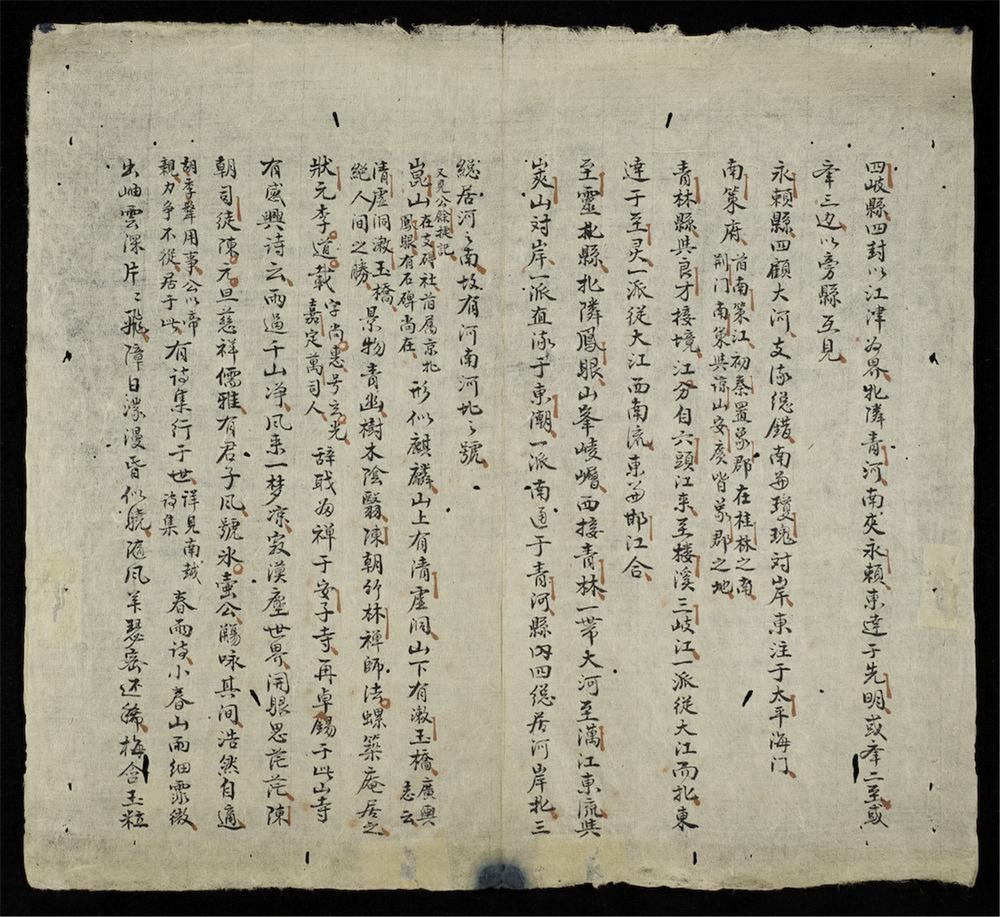 四岐縣四封以江津為界北隣青河南夾永賴東達于先明或牽二至或
牽三边以旁縣互見
永賴縣四顧大河支流縂錯南並瓊瑰対岸東注于太平海门
南策府 首南策江初秦置象郡在桂林之南
荆门南策與諒山安廣皆象郡之地
青林縣與良才接境江分自六頭江来至楼溪三岐江一派從大江而北東
達于至灵一派從大江西南流東並邯江合
至靈北縣北隣鳳眼山峯崚嶒西接青林一帯大河至濿江東流與
炭山対岸一派直流于東潮一派南通于青河縣内四縂居河岸北三
縂居河之南故有河南河北之號
又見公餘捷記
崑山 在支碍社首属京北
鳳眼有石碑尚在 形似麒麟山上有清虛洞山下有漱玉橋 廣輿
志云
清虛洞漱玉橋
絕人间之勝 景物青幽樹木陰翳陳朝竹林禅師法螺築庵居之
狀元李道載 字尚惠号玄光
嘉定萬司人 辞职為禅于安子寺再卓錫于此山寺
有感興诗云雨過千山净凤来一梦凉寂漠塵世界開眼思茫茫陳
朝司徒陳元旦慈祥儒雅有君子凤號氷壷公觴咏其间浩然自適
胡季犛用事公以帝
親力争不從居于此 有诗集行于世 详見南越
诗集 春雨诗小春山雨细霏微
出岫雲深片〻飛障日濛漫昏似曉随风羊瑟密还稀梅含玉粒